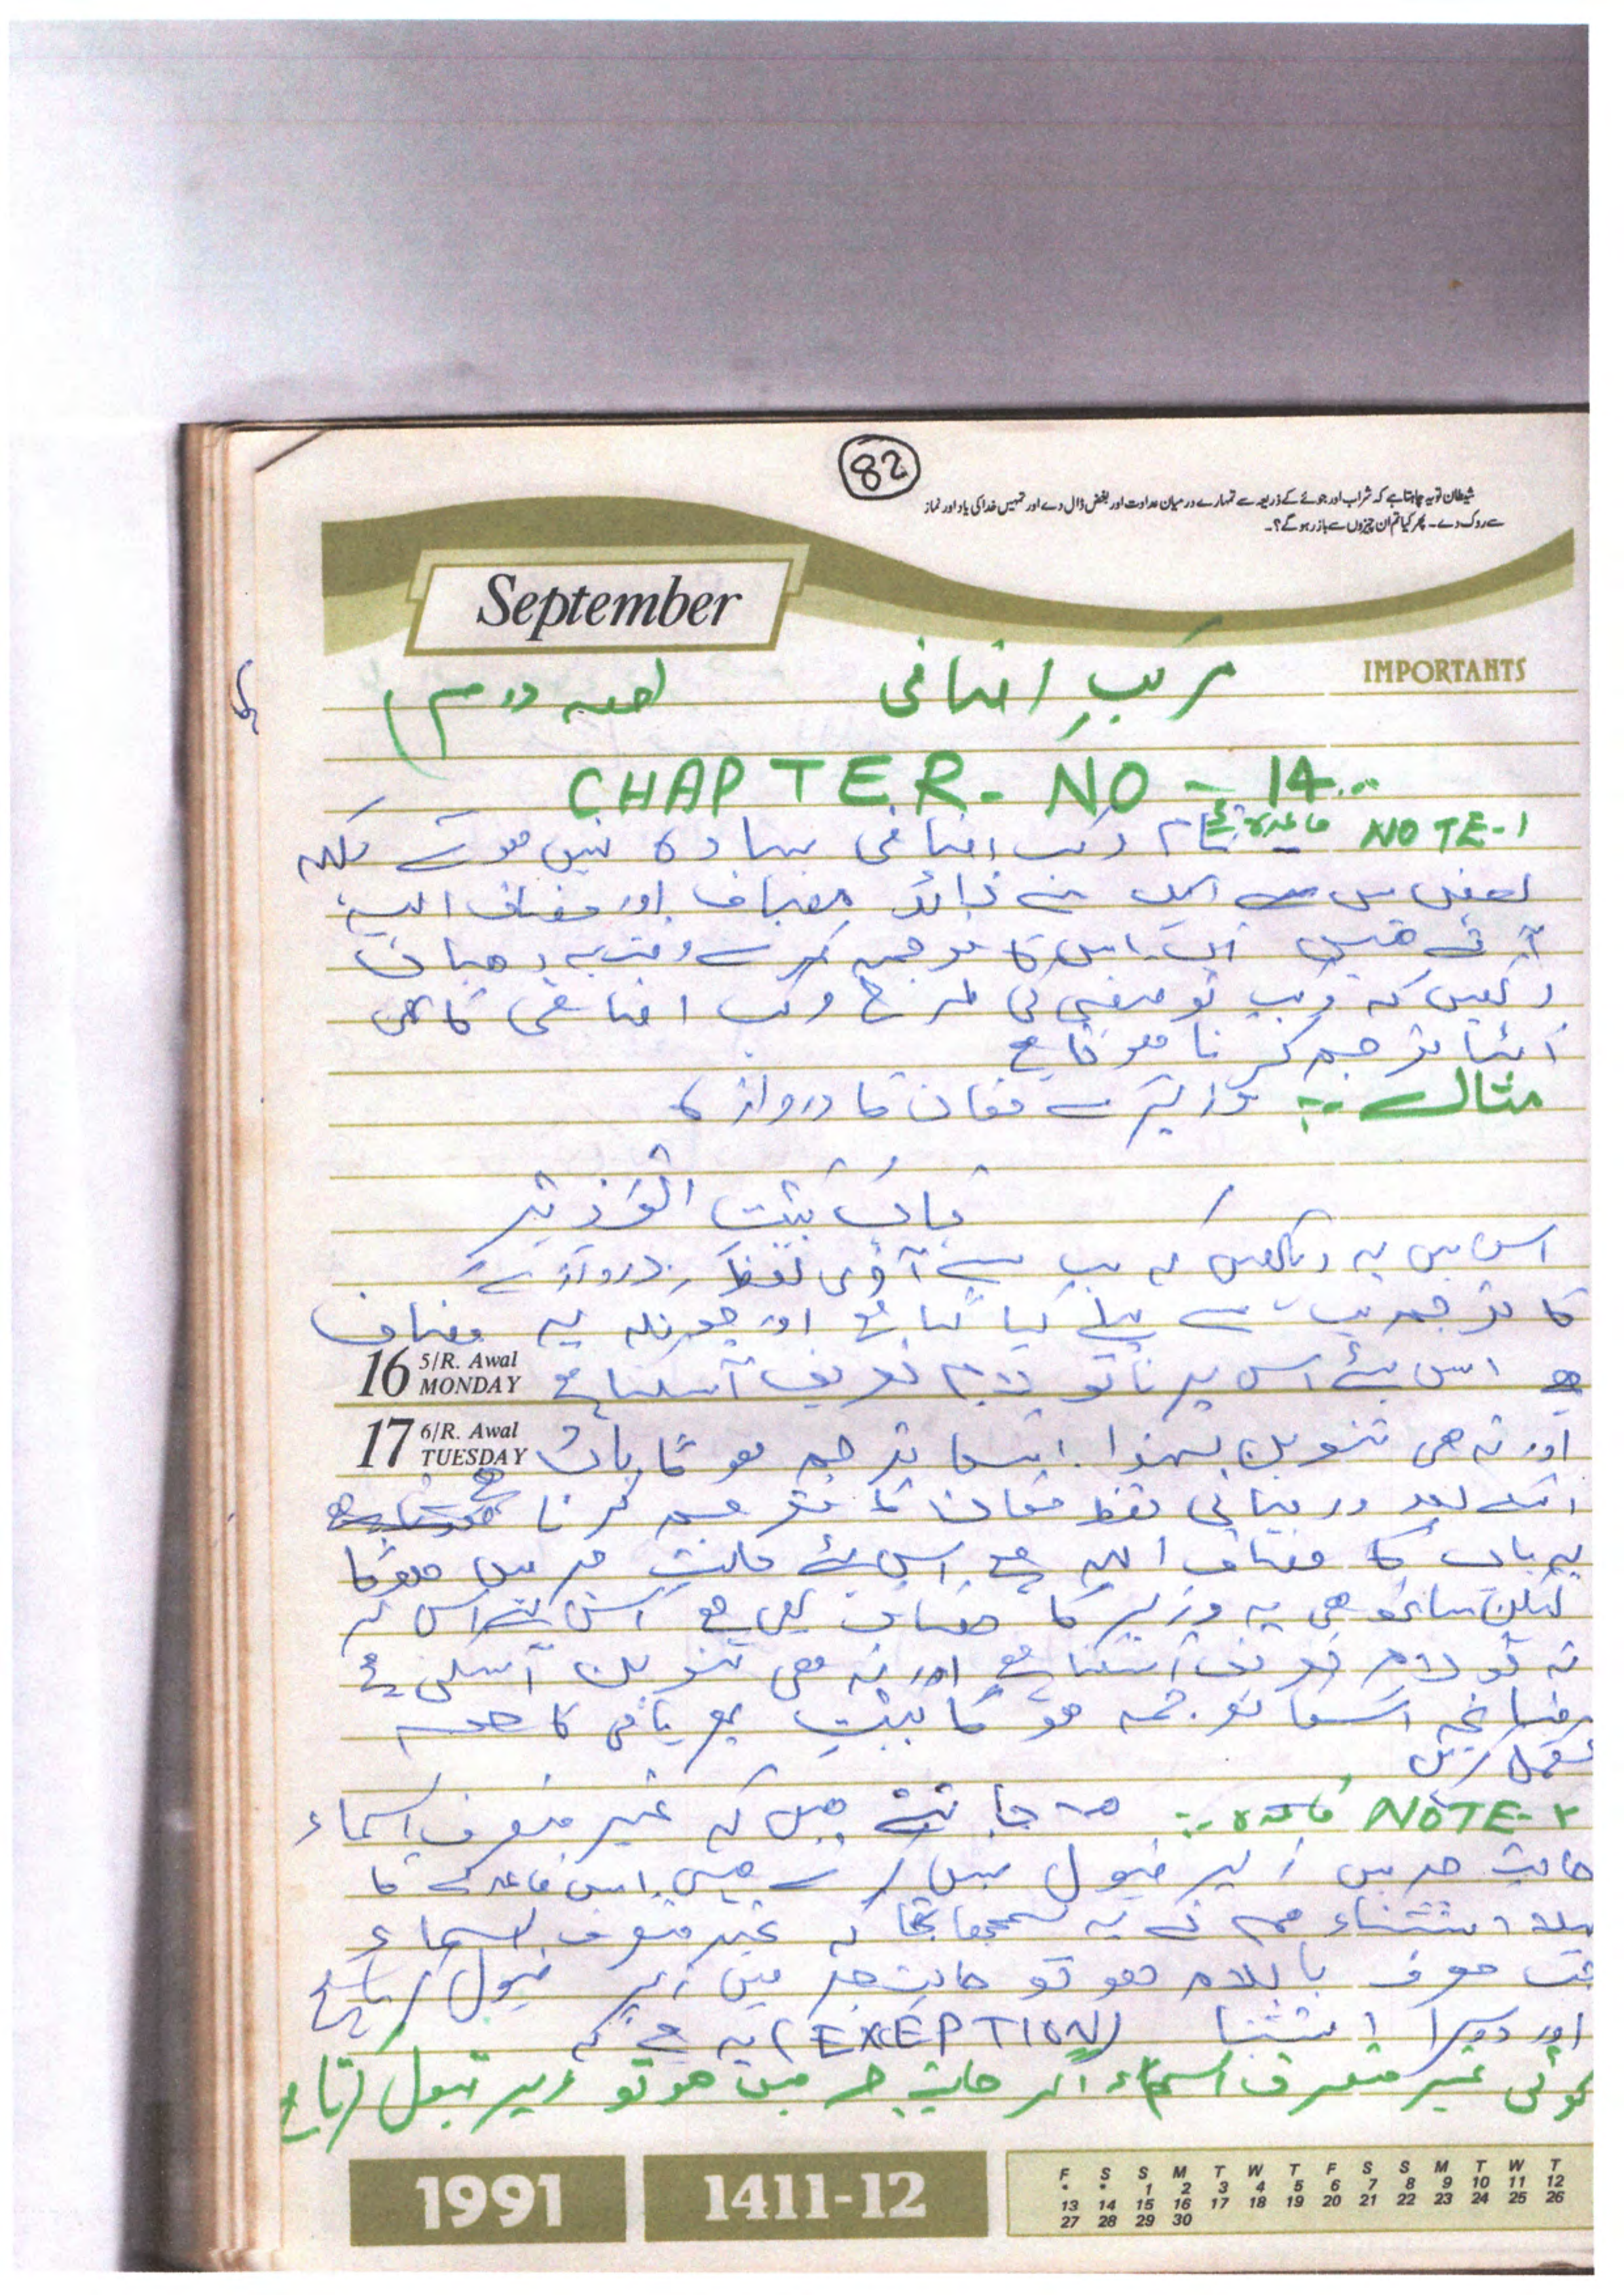 82
شیطان تو یہ چاہتا ہے کہ شراب اور جوئے کے ذریعہ سے تمہارے درمیان عداوت اور بغض ڈال دے اور تمہیں خدا کی یاد اور نماز
سے روک دے۔ پھر کیا تم ان چیزوں سے باز رہو گے؟۔
September
IMPORTANTS
مرکبِ اضافی (حصہ دوم)
CHAPTER-NO-14
NOTE-1 قاعدہ تمام مرکب اضافی سادہ نہیں ہوتے بلکہ
بعض میں ایک سے زائد مضاف اور مضاف الیہ
آتے ہیں اس کا ترجمہ کرتے وقت یہ دھیان
رکھیں کہ مرکب توصیفی کی طرح مرکب اضافی کا بھی
الٹا ترجمہ کرنا ہوتا ہے
مثال :- وزیر کے مکان کا دروازہ
بَابُ بَیْتِ الْوَزِیْرِ
اس میں یہ دیکھیں کہ سب سے آخری لفظ دروازے
کا ترجمہ سب سے پہلے کیا گیا ہے اور چونکہ یہ مضاف
16 5/R. Awal MONDAY
ہے اس لئے اس پر نا تو لام تعریف آسکتا ہے
17 6/R. Awal TUESDAY
اور نہ ھی تنوین لہذا اسکا ترجمہ ہوگا بابُ
اسکے بعد درمیانی لفظ مکان کا ترجمہ کرنا ہے
یہ باب کا مضاف الیہ ہے اس لئے حالتِ جر میں ہوگا
لیکن ساتھ ھی یہ وزیر کا مضاف بھی ہے اس لئے اس پر
نہ تو لام تعریف آسکتا ہے اور نہ ھی تنوین آسکتی ہے
چنانچہ اسکا ترجمہ ہوگا بیتِ پھر باقی کا حصہ
مکمل کریں
NOTE-۲ قاعدہ :- ھم جانتے ہیں کہ غیر منصرف اسماء
حالتِ جر میں زیر قبول نہیں کرتے ہیں اس قاعدے کا
پہلا استثناء ہم نے یہ سمجھا تھا کہ غیر منصرف اسماء
جب معرف باللام ہو تو حالتِ جر میں زیر قبول کرتا ہے
اور دوسرا استثنا (EXCEPTION) یہ ہے کہ
کوئی غیر منصرف اسماء اگر حالتِ جر میں ھو تو زیر قبول کرتا ہے
1991
1411-12
F S S M T W T F S S M T W T
* * 1 2 3 4 5 6 7 8 9 10 11 12
13 14 15 16 17 18 19 20 21 22 23 24 25 26
27 28 29 30